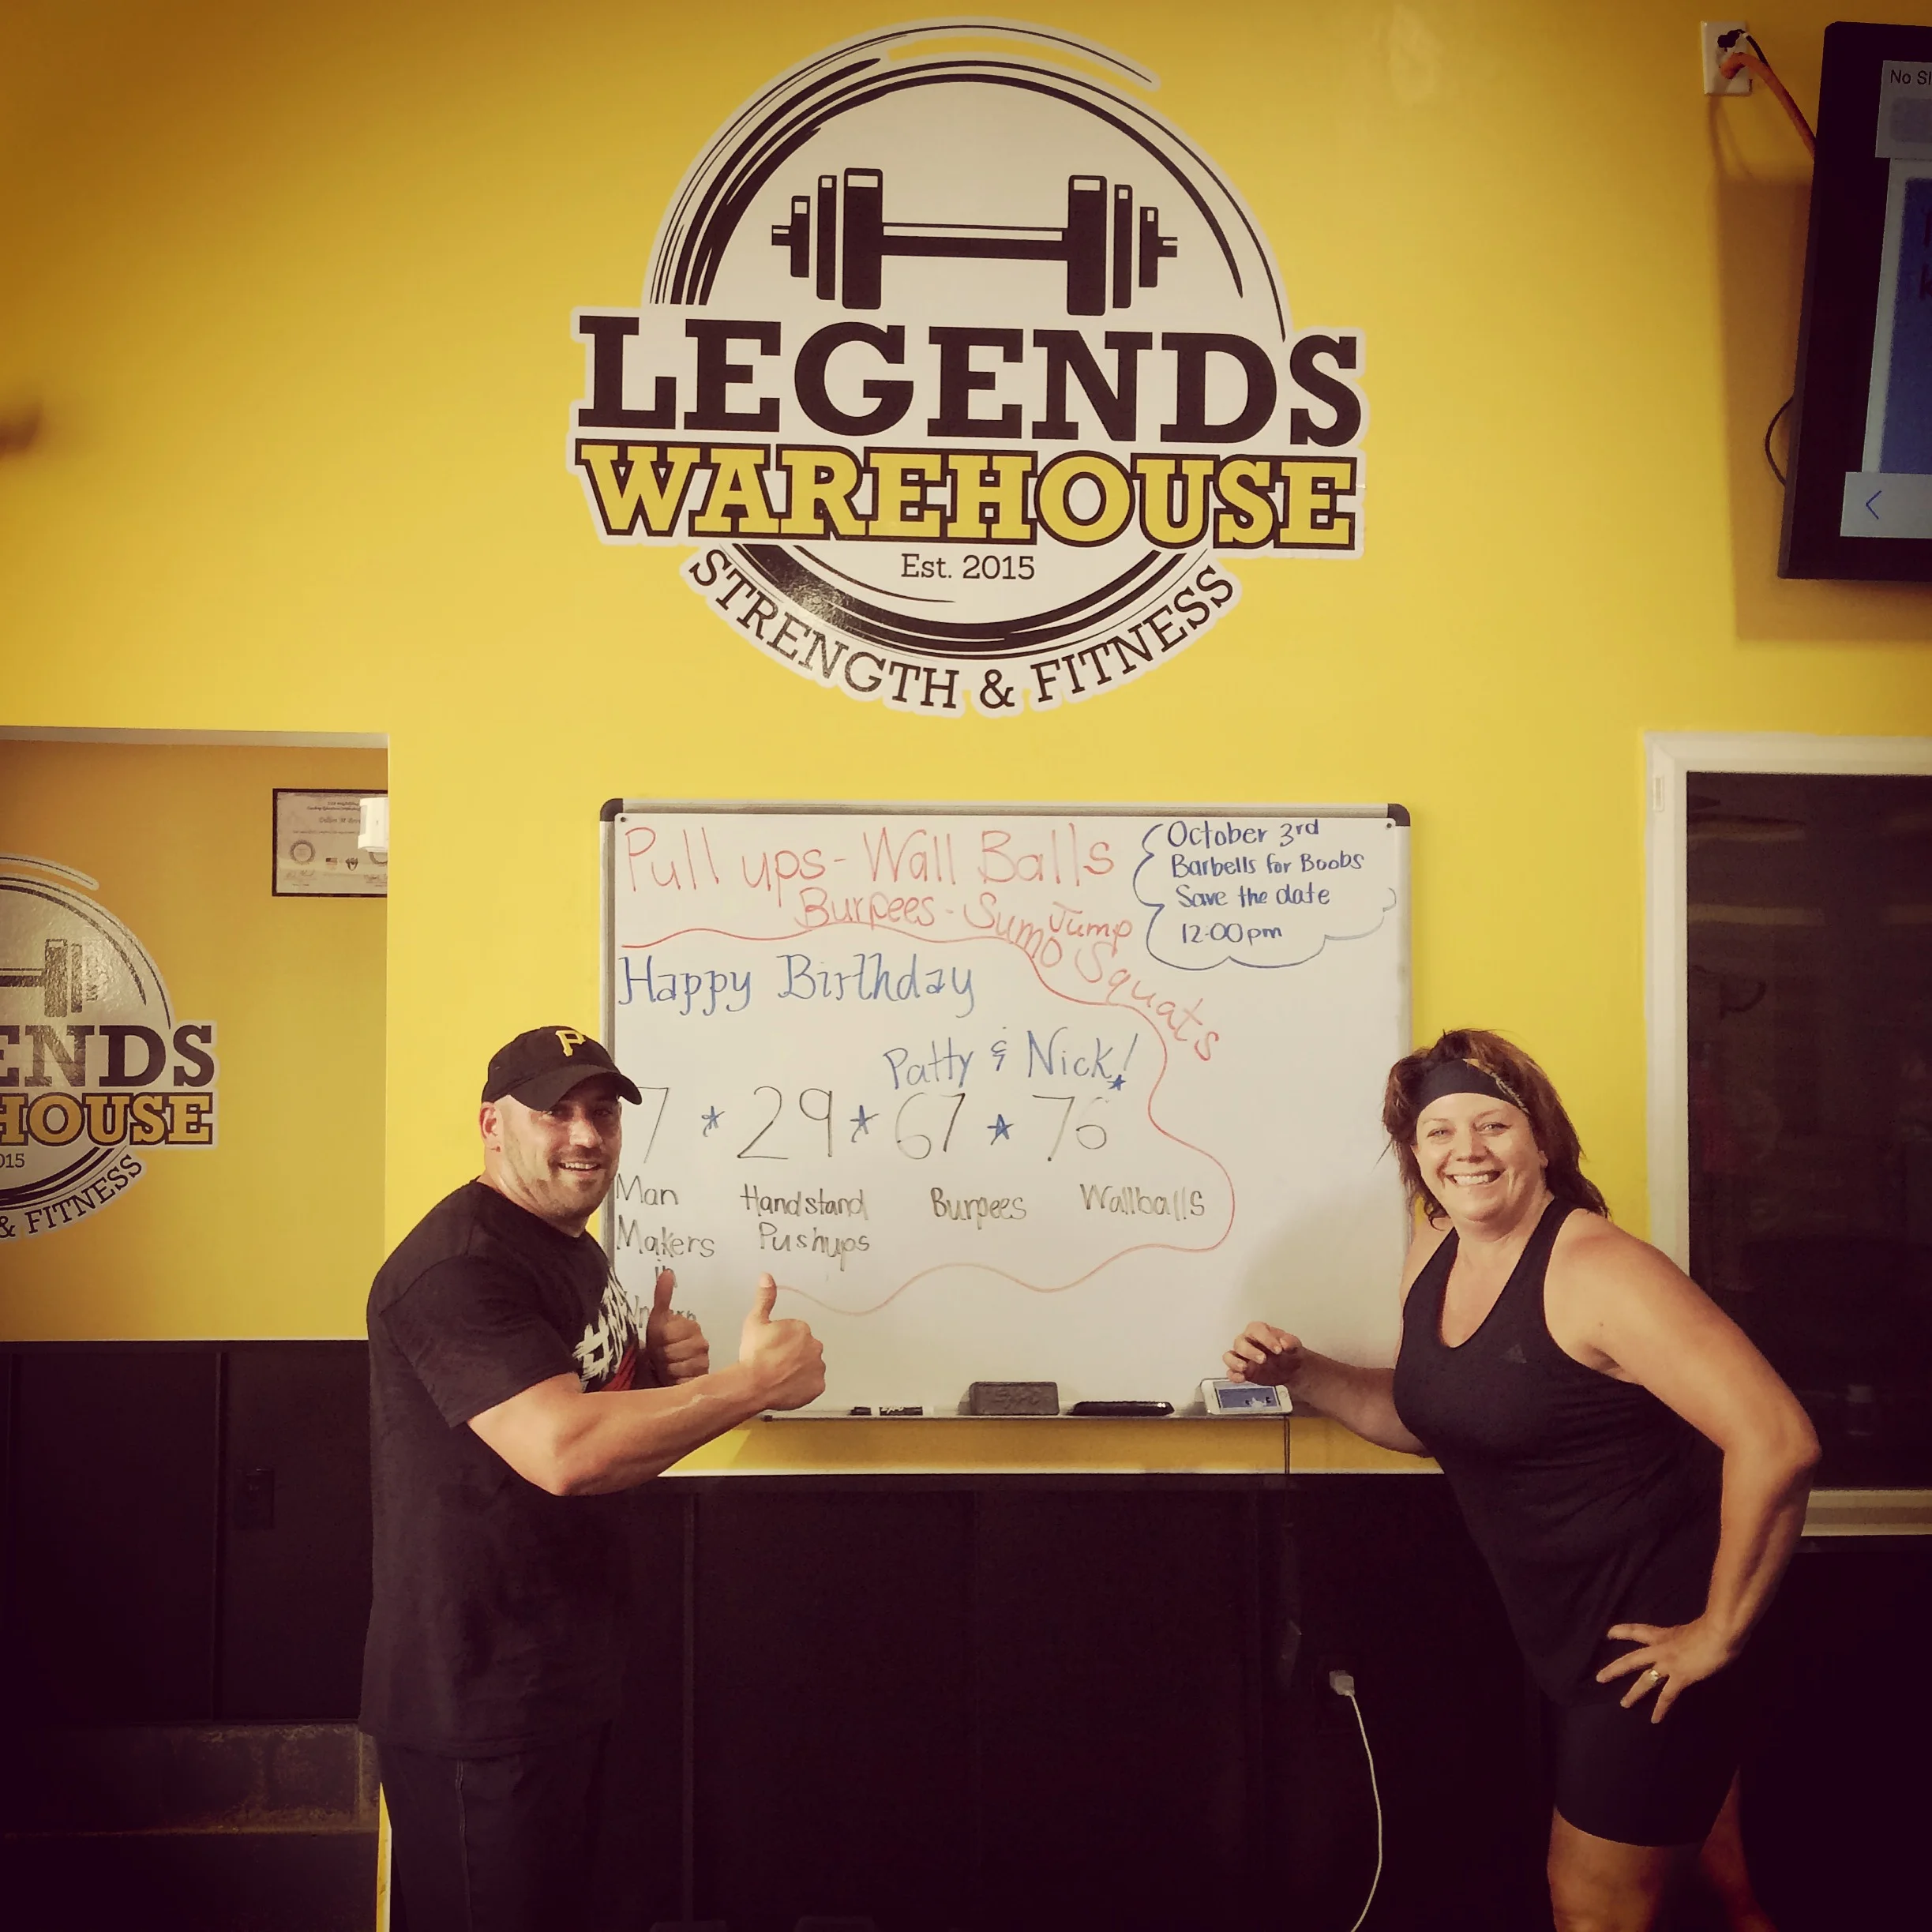 LEGENDS
WAREHOUSE
Est. 2015
STRENGTH & FITNESS
No
Pull ups - Wall Balls
Burpees - Sumo Jump Squats
October 3rd
Barbells for Boobs
Save the date
12:00pm
Happy Birthday
Patty & Nick!
7 * 29 * 67 * 76
Man Makers in
Handstand Pushups
Burpees
Wallballs
P
ENDS
HOUSE
015
& FITNESS